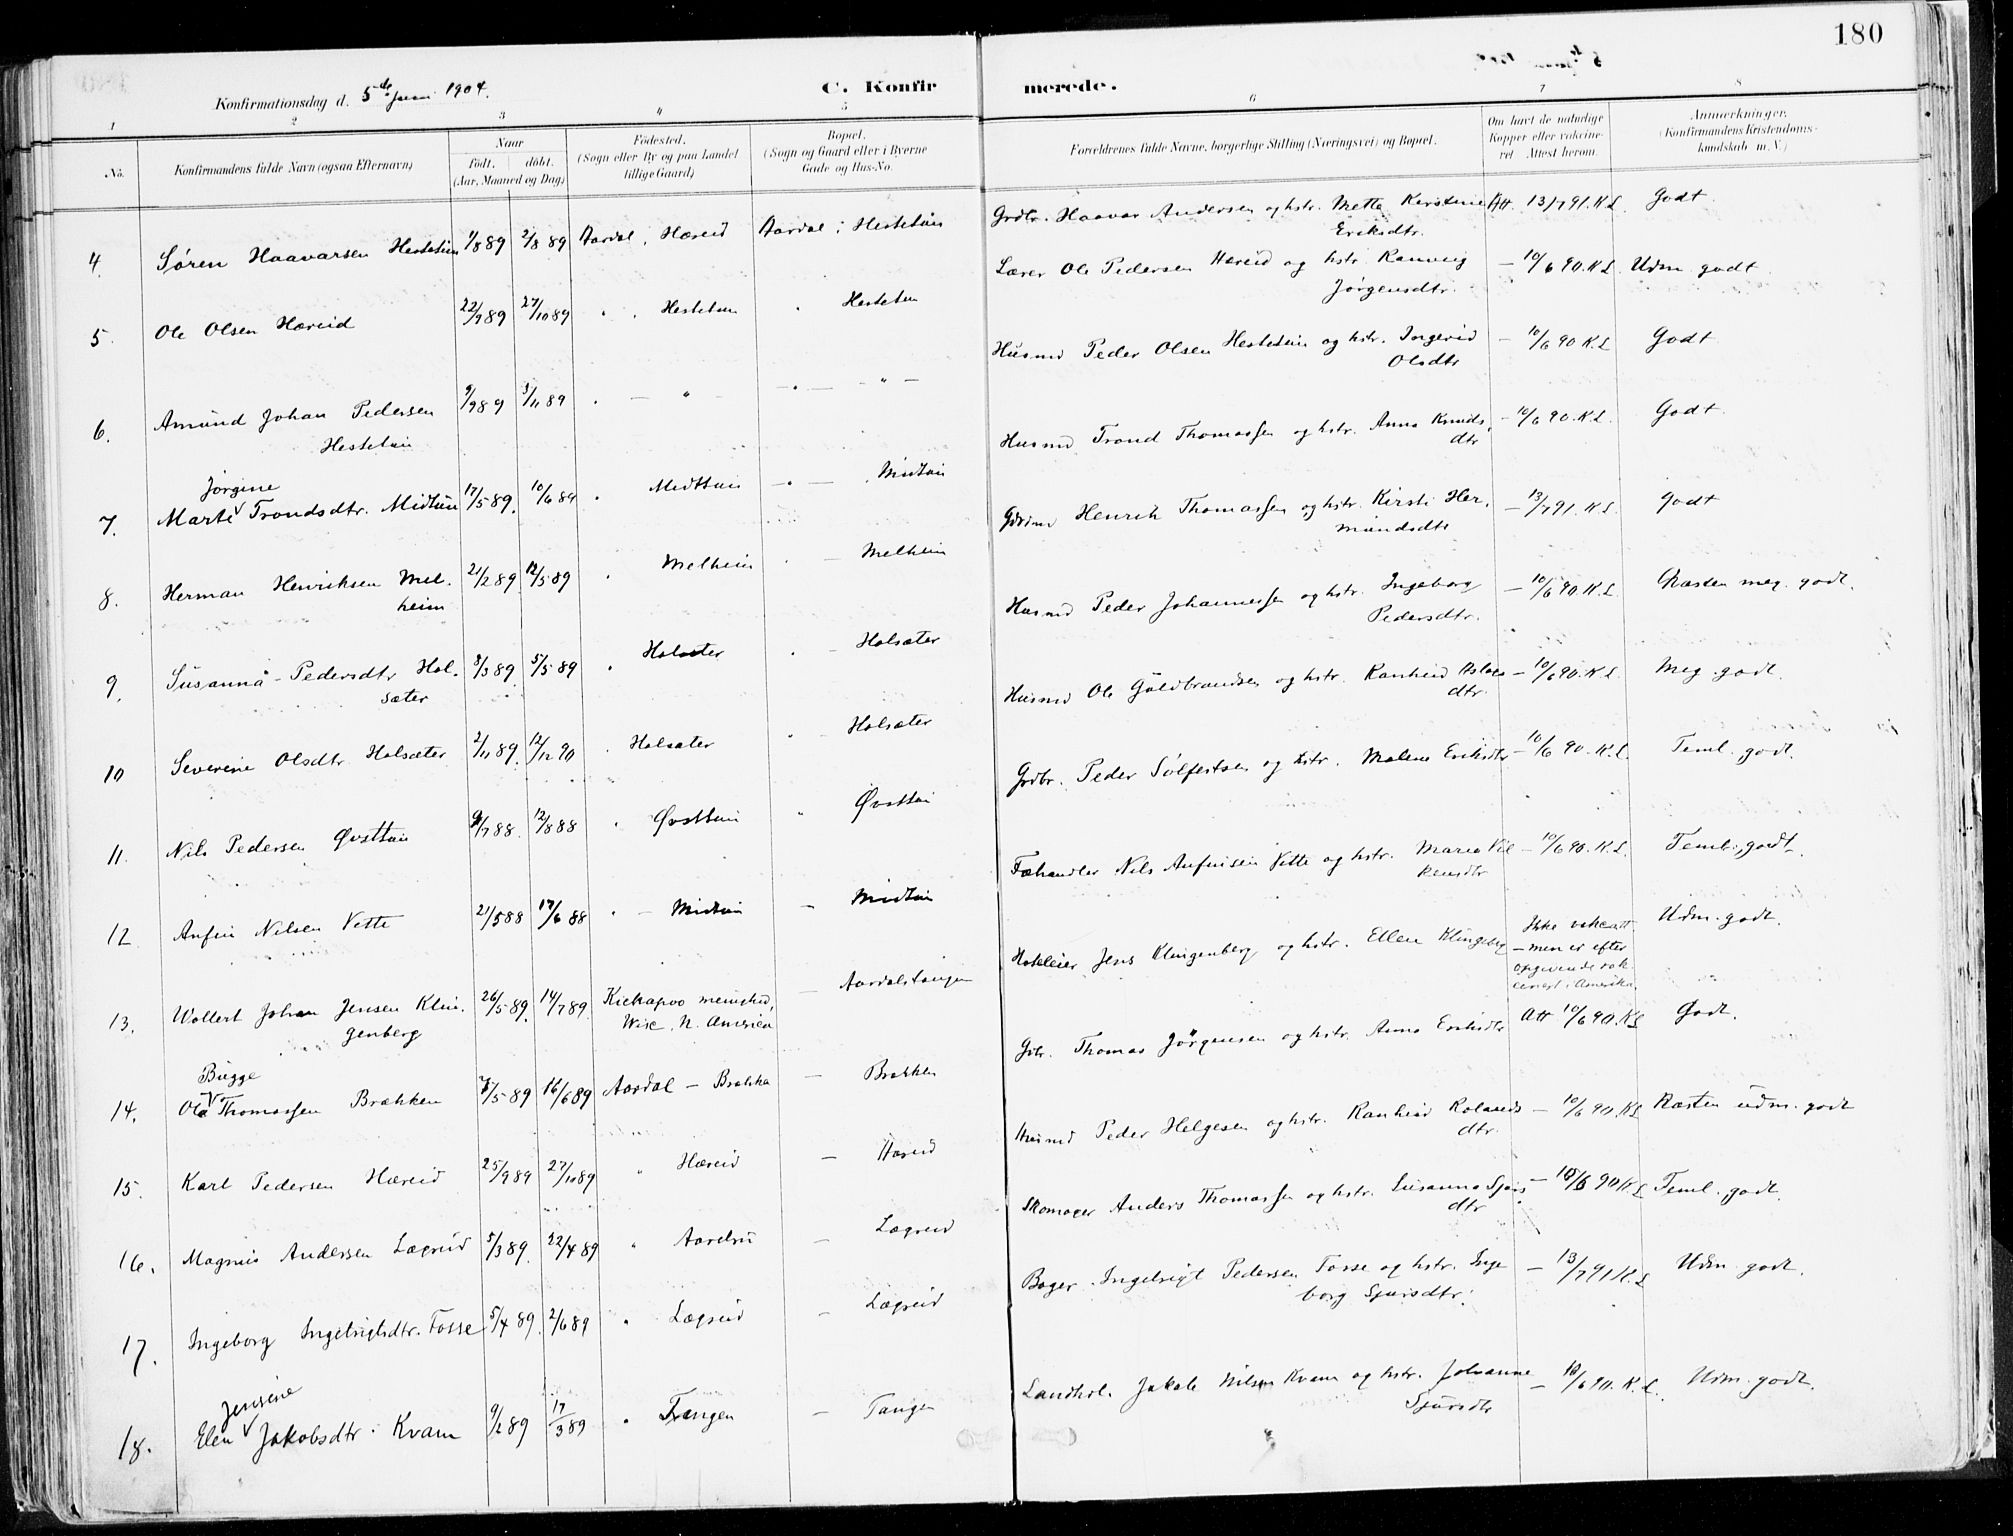 180
Konfirmationsdag d. 5te Juni 1904.
C. Konfirmerede.
1 2 3 4 5 6 7 8
No.
Konfirmandens fulde Navn (ogsaa Efternavn)
Naar
födt. döbt.
(Aar, Maaned og Dag)
Födested.
(Sogn eller By og paa Landet
tillige Gaard)
Bopæl.
(Sogn og Gaard eller i Byerne
Gade og Hus-No.
Forældrenes fulde Navne, borgerlige Stilling (Næringsvei) og Bopæl.
Om havt de naturlige
Kopper eller vakcine-
ret Attest herom.
Anmærkninger.
(Konfirmandens Kristendoms-
kundskab m. V.)
4. Søren Haavarsen Hestetun 1/8 89 2/8 89 Aardal, Hæreid Aardal; Hestetun Grdbr. Haavar Andersen og hstr. Mette Kerstine Att. 13/7 91. K.L. Godt.
Eriksdtr.
5. Ole Olsen Hæreid 22/9 89 27/10 89 " " Hestetun " Hestetun Lærer Ole Pedersen Hæreid og hstr. Ranveig — 10/6 90. K.L. Udm. godt.
Jørgensdtr.
6. Amund Johan Pedersen 9/9 89 3/11 89 " — " — — " — — " — Husmd Peder Olsen Hestetun og hstr. Ingerid — 10/6 90 K.L Godt
Hestetun
Olsdtr
Jørgine
7. Marte Trondsdtr. Midtun 17/5 89. 10/6 89 " Midttun — " — Midtun Husmd Trond Thomassen og hstr. Anna Knuds — 10/6 90. K.L. Godt
dtr
8. Herman Henriksen Mel- 21/2 89 12/5 89 " Melheim " — Melheim Gdmd Henrik Thomassen og hstr. Kirsti Her- — 13/7 91. K.L. Godt
heim
mundsdtr
9. Susanna Pedersdtr Hol- 8/3 89 5/5 89 " Holsæter " — Holsæter Husmd Peder Johannessen og hstr. Ingeborg — 10/6 90. K.L. Næsten meg. godt.
sæter
Pedersdtr.
10 Severine Olsdtr. Holsæter 2/11 89. 12/12 90 " Holsæter " Holsæter Husmd Ole Guldbrandsen og hstr. Ranheid Aslaks — 10/6 90. K.L. Meg. godt.
dtr.
11. Nils Pedersen Øvsttun 9/7 88. 12/8 88 " Øvsttun " Øvsttun Grdbr. Peder Sølfestsen og hstr. Malene Eriksdtr — 10/6 90. K.L. Teml. godt.
12. Anfin Nilsen Vette 21/5 88 17/6 88 " — Midtun — Midtun Fæhandler Nils Anfinsen Vette og hstr. Maria Vil — 10/6 90. K.L. Teml. godt.
kensdtr
13. Wollert Johan Jensen Klin- 26/5 89. 14/7 89. Kickapoo menighed, — Aardalstangen Hoteleier Jens Klingenberg og hstr. Ellen Klingebg Ikke vakc.att. Udm. godt.
genberg
Wisc. N. America
— men er efter
opgivende vak
cineret i Amerika.
Bugge
14. Ola Thomassen Brækken 7/5 89 16/6 89 Aardal — Brækka — Brækken Gbr. Thomas Jørgensen og hstr. Anna Eriksdtr Att 10/6 90. K.L Godt.
15. Karl Pedersen Hæreid 25/9 89 27/10 89 " Hæreid — Hæreid Husmd Peder Helgesen og hstr. Ranheid Rolands — 10/6 90. K.L Næsten udm. godt
dtr.
16. Magnus Andersen Lægreid 5/3 89. 22/4 89 " Aardru — Lægreid Skomager Anders Thomassen og hstr. Susanna Sjurs — 10/6 90 K.L Teml. godt.
dtr
17. Ingeborg Ingebrigtsdtr. Fosse 5/4 89. 2/6 89 " Lægreid — Lægreid Bager Ingebrigt Pedersen Fosse og hstr. Inge — 13/7 91 K.L Udm. godt.
borg Sjursdtr.
Jensine
18. Elen Jakobsdtr. Kvam 9/2 89 17/3 89 " Tangen — Tangen Landhdl. Jakob Nilsen Kvam og hstr. Johanne — 10/6 90. K.L. Udm. godt.
Sjursdtr